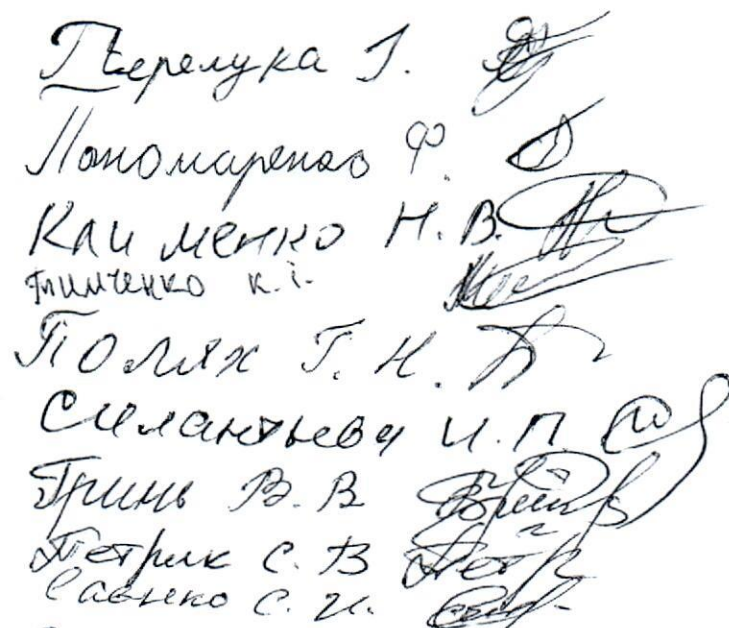 Перелука Т.
Пономаренко Ф.
Клименко Н. В.
Тимченко К. І.
Полях Т. Н.
Силантьева И. П.
Гринь В. В
Петрик С. В
Савенко С. И.